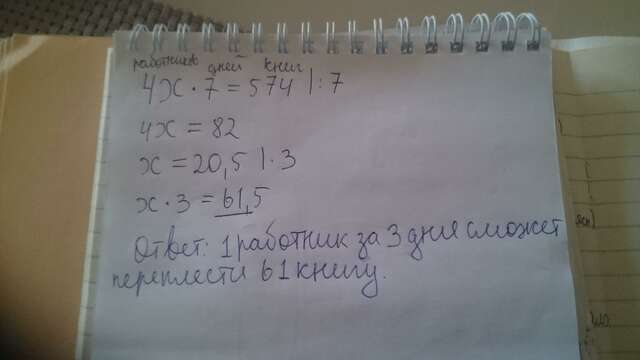 работников дней книг
4х · 7 = 574 | : 7
4х = 82
х = 20,5 | · 3
х · 3 = 61,5
Ответ: 1 работник за 3 дня сможет
переплести 61 книгу.